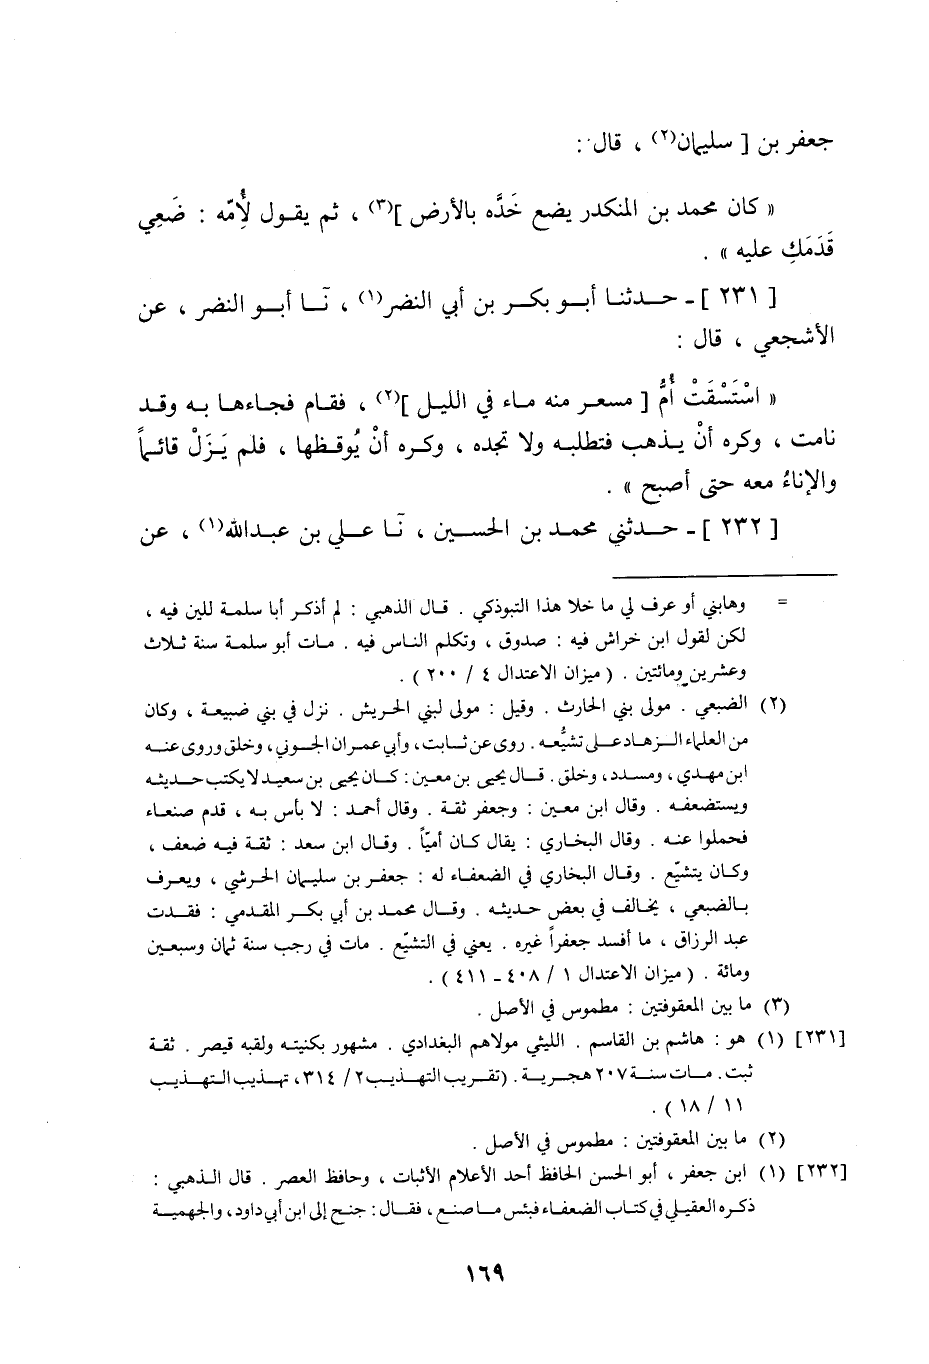 جعفر بن [ سليمان(٢) ، قال :
« كان محمد بن المنكدر يضع خَدَّه بالأرض ](٣) ، ثم يقول لأُمّه : ضَعِي
قَدَمَكِ عليه » .
[ ٢٣١ ] ـ حدثنا أبو بكر بن أبي النضر(١) ، نَا أبو النضر ، عن
الأشجعي ، قال :
« اسْتَسْقَتْ أُمُّ [ مسعر منه ماء في الليل ](٢) ، فقام فجاءها به وقد
نامت ، وكره أنْ يذهب فتطلبه ولا تجده ، وكره أنْ يُوقظها ، فلم يَزَلْ قائماً
والإناءُ معه حتى أصبح » .
[ ٢٣٢ ] ـ حدثني محمد بن الحسين ، نَا علي بن عبدالله(١) ، عن
= وهابني أو عرف لي ما خلا هذا التبوذكي . قال الذهبي : لم أذكر أبا سلمة للين فيه ،
لكن لقول ابن خراش فيه : صدوق ، وتكلم الناس فيه . مات أبو سلمة سنة ثلاث
وعشرين ومائتين . ( ميزان الاعتدال ٤ / ٢٠٠ ) .
(٢) الضبعي . مولى بني الحارث . وقيل : مولى لبني الحريش . نزل في بني ضبيعة ، وكان
من العلماء الزهاد على تشيُّعه . روى عن ثابت ، وأبي عمران الجوني ، وخلق وروى عنه
ابن مهدي ، ومسدد ، وخلق . قال يحيى بن معين : كان يحيى بن سعيد لا يكتب حديثه
ويستضعفه . وقال ابن معين : وجعفر ثقة . وقال أحمد : لا بأس به ، قدم صنعاء
فحملوا عنه . وقال البخاري : يقال كان أميّاً . وقال ابن سعد : ثقة فيه ضعف ،
وكان يتشيّع . وقال البخاري في الضعفاء له : جعفر بن سليمان الحرشي ، ويعرف
بالضبعي ، يخالف في بعض حديثه . وقال محمد بن أبي بكر المقدمي : فقدت
عبد الرزاق ، ما أفسد جعفراً غيره . يعني في التشيّع . مات في رجب سنة ثمان وسبعين
ومائة . ( ميزان الاعتدال ١ / ٤٠٨ ـ ٤١١ ) .
(٣) ما بين المعقوفتين : مطموس في الأصل .
[٢٣١] (١) هو : هاشم بن القاسم . الليثي مولاهم البغدادي . مشهور بكنيته ولقبه قيصر . ثقة
ثبت . مات سنة ٢٠٧ هجرية . (تقريب التهذيب ٢ / ٣١٤ ، تهذيب التهذيب
١١ / ١٨ ) .
(٢) ما بين المعقوفتين : مطموس في الأصل .
[٢٣٢] (١) ابن جعفر ، أبو الحسن الحافظ أحد الأعلام الأثبات ، وحافظ العصر . قال الذهبي :
ذكره العقيلي في كتاب الضعفاء فبئس ما صنع ، فقال : جنح إلى ابن أبي داود ، والجهمية
١٦٩